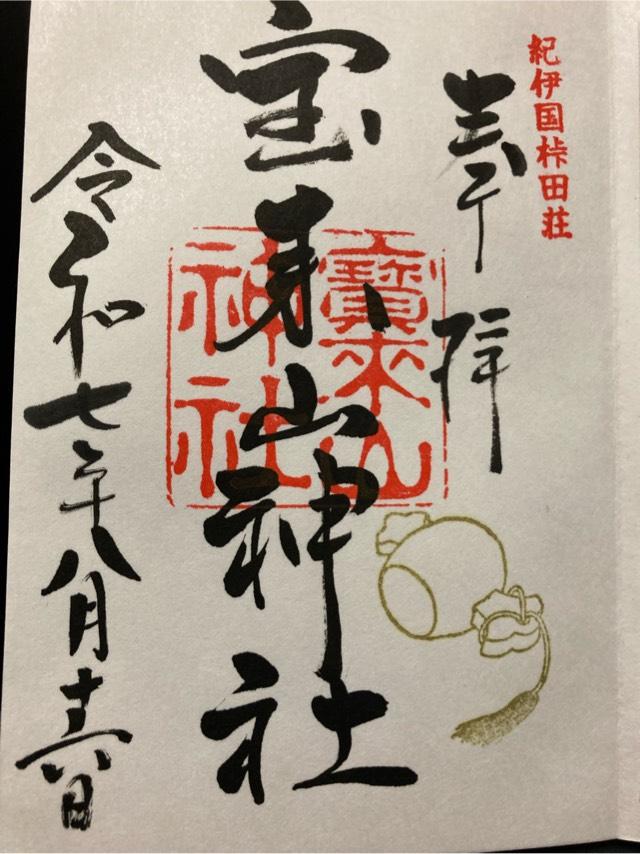 紀伊国桛田荘
奉拝
宝来山神社
寶来山
神社
令和七年八月十六日